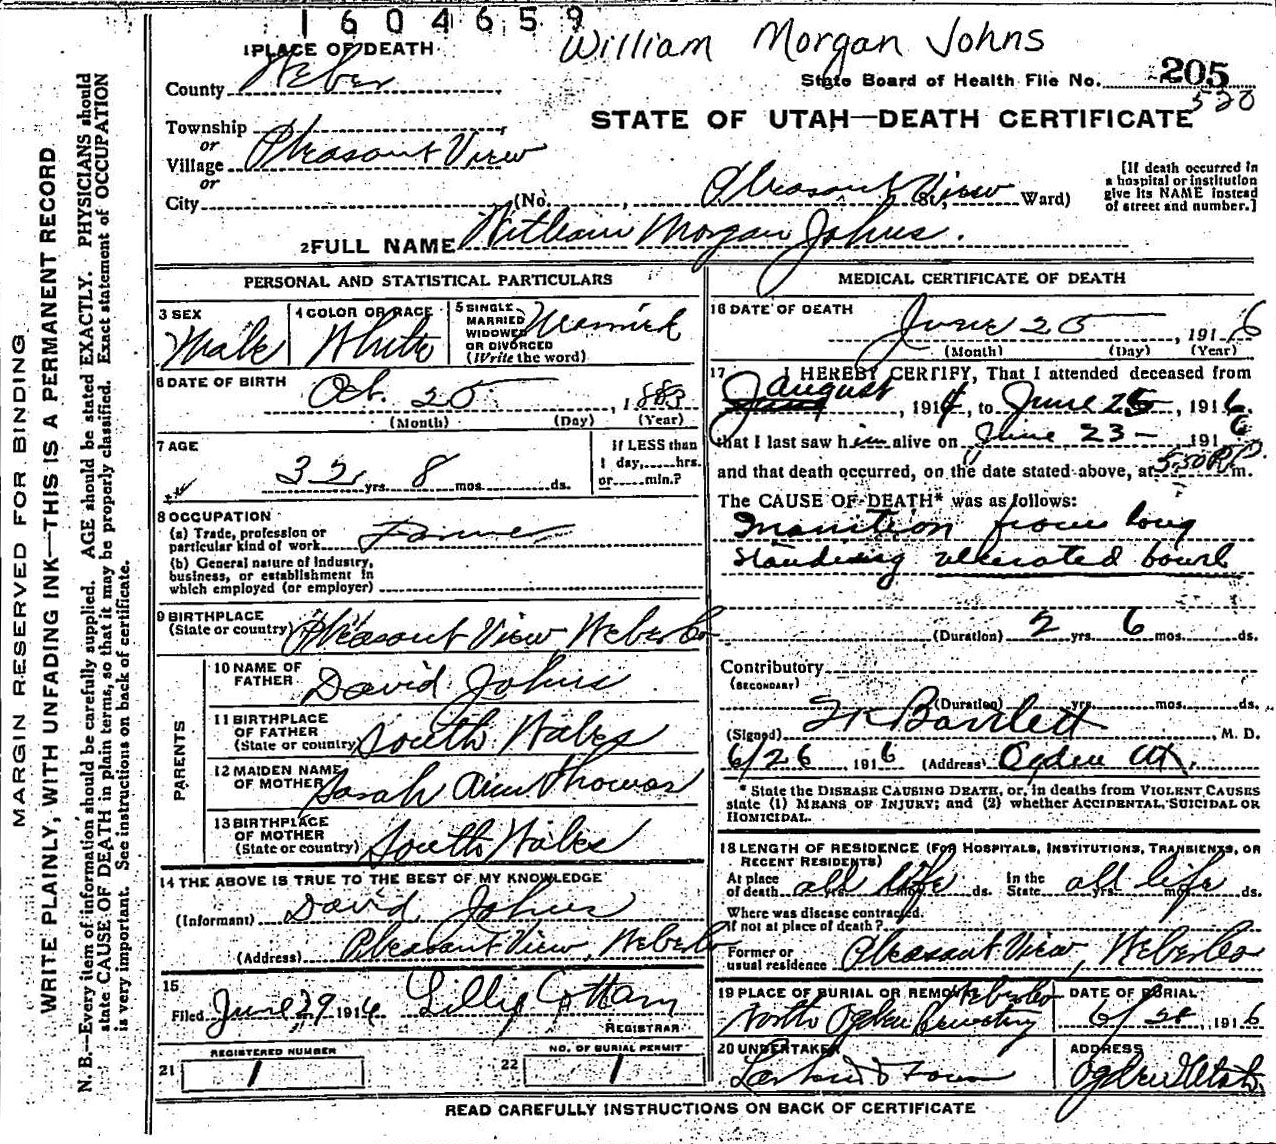 1604659
William Morgan Johns
1 PLACE OF DEATH
County Weber
State Board of Health File No. 205
520
STATE OF UTAH—DEATH CERTIFICATE
Township
or
Village Pleasant View
or
City (No. , Pleasant View St., Ward)
[If death occurred in
a hospital or institution
give its NAME instead
of street and number.]
2 FULL NAME William Morgan Johns.
PERSONAL AND STATISTICAL PARTICULARS
3 SEX
Male
4 COLOR OR RACE
White
5 SINGLE
MARRIED
WIDOWED
OR DIVORCED
(Write the word)
Married
6 DATE OF BIRTH
Oct. 25, 1883
(Month) (Day) (Year)
7 AGE
32 yrs. 8 mos. ds.
If LESS than
1 day, hrs.
or min.?
8 OCCUPATION
(a) Trade, profession or
particular kind of work Farmer
(b) General nature of industry,
business, or establishment in
which employed (or employer)
9 BIRTHPLACE
(State or country) Pleasant View Weber Co
PARENTS
10 NAME OF
FATHER David Johns
11 BIRTHPLACE
OF FATHER
(State or country) South Wales
12 MAIDEN NAME
OF MOTHER Sarah Ann Thomas
13 BIRTHPLACE
OF MOTHER
(State or country) South Wales
14 THE ABOVE IS TRUE TO THE BEST OF MY KNOWLEDGE
(Informant) David Johns
(Address) Pleasant View, Weber Co
15
Filed June 29 1916 Lillie Cottam
REGISTRAR
21 REGISTERED NUMBER
1
22 NO. OF BURIAL PERMIT
1
MEDICAL CERTIFICATE OF DEATH
16 DATE OF DEATH
June 25, 1916
(Month) (Day) (Year)
17 I HEREBY CERTIFY, That I attended deceased from
August, 191 , to June 25, 1916.
that I last saw him alive on June 23 - 1916
and that death occurred, on the date stated above, at 5:30 P. m.
The CAUSE OF DEATH* was as follows:
Inanition from long
standing ulcerated bowel
(Duration) 2 yrs. 6 mos. ds.
Contributory
(SECONDARY)
(Duration) yrs. mos. ds.
(Signed) Bartlett, M. D.
6/26 1916 (Address) Ogden Ut.
* State the DISEASE CAUSING DEATH, or, in deaths from VIOLENT CAUSES
state (1) MEANS OF INJURY; and (2) whether ACCIDENTAL, SUICIDAL OR
HOMICIDAL.
18 LENGTH OF RESIDENCE (FOR HOSPITALS, INSTITUTIONS, TRANSIENTS, OR
RECENT RESIDENTS)
At place
of death all life yrs. mos. ds.
In the
State all life yrs. mos. ds.
Where was disease contracted,
if not at place of death?
Former or
usual residence Pleasant View, Weber Co
19 PLACE OF BURIAL OR REMOVAL
Weber Co
North Ogden Cemetery
DATE OF BURIAL
6/28, 1916
20 UNDERTAKER
ADDRESS
Ogden Utah.
READ CAREFULLY INSTRUCTIONS ON BACK OF CERTIFICATE
MARGIN RESERVED FOR BINDING
WRITE PLAINLY, WITH UNFADING INK—THIS IS A PERMANENT RECORD
N. B.—Every item of information should be carefully supplied. AGE should be stated EXACTLY. PHYSICIANS should
state CAUSE OF DEATH in plain terms, so that it may be properly classified. Exact statement of OCCUPATION
is very important. See instructions on back of certificate.